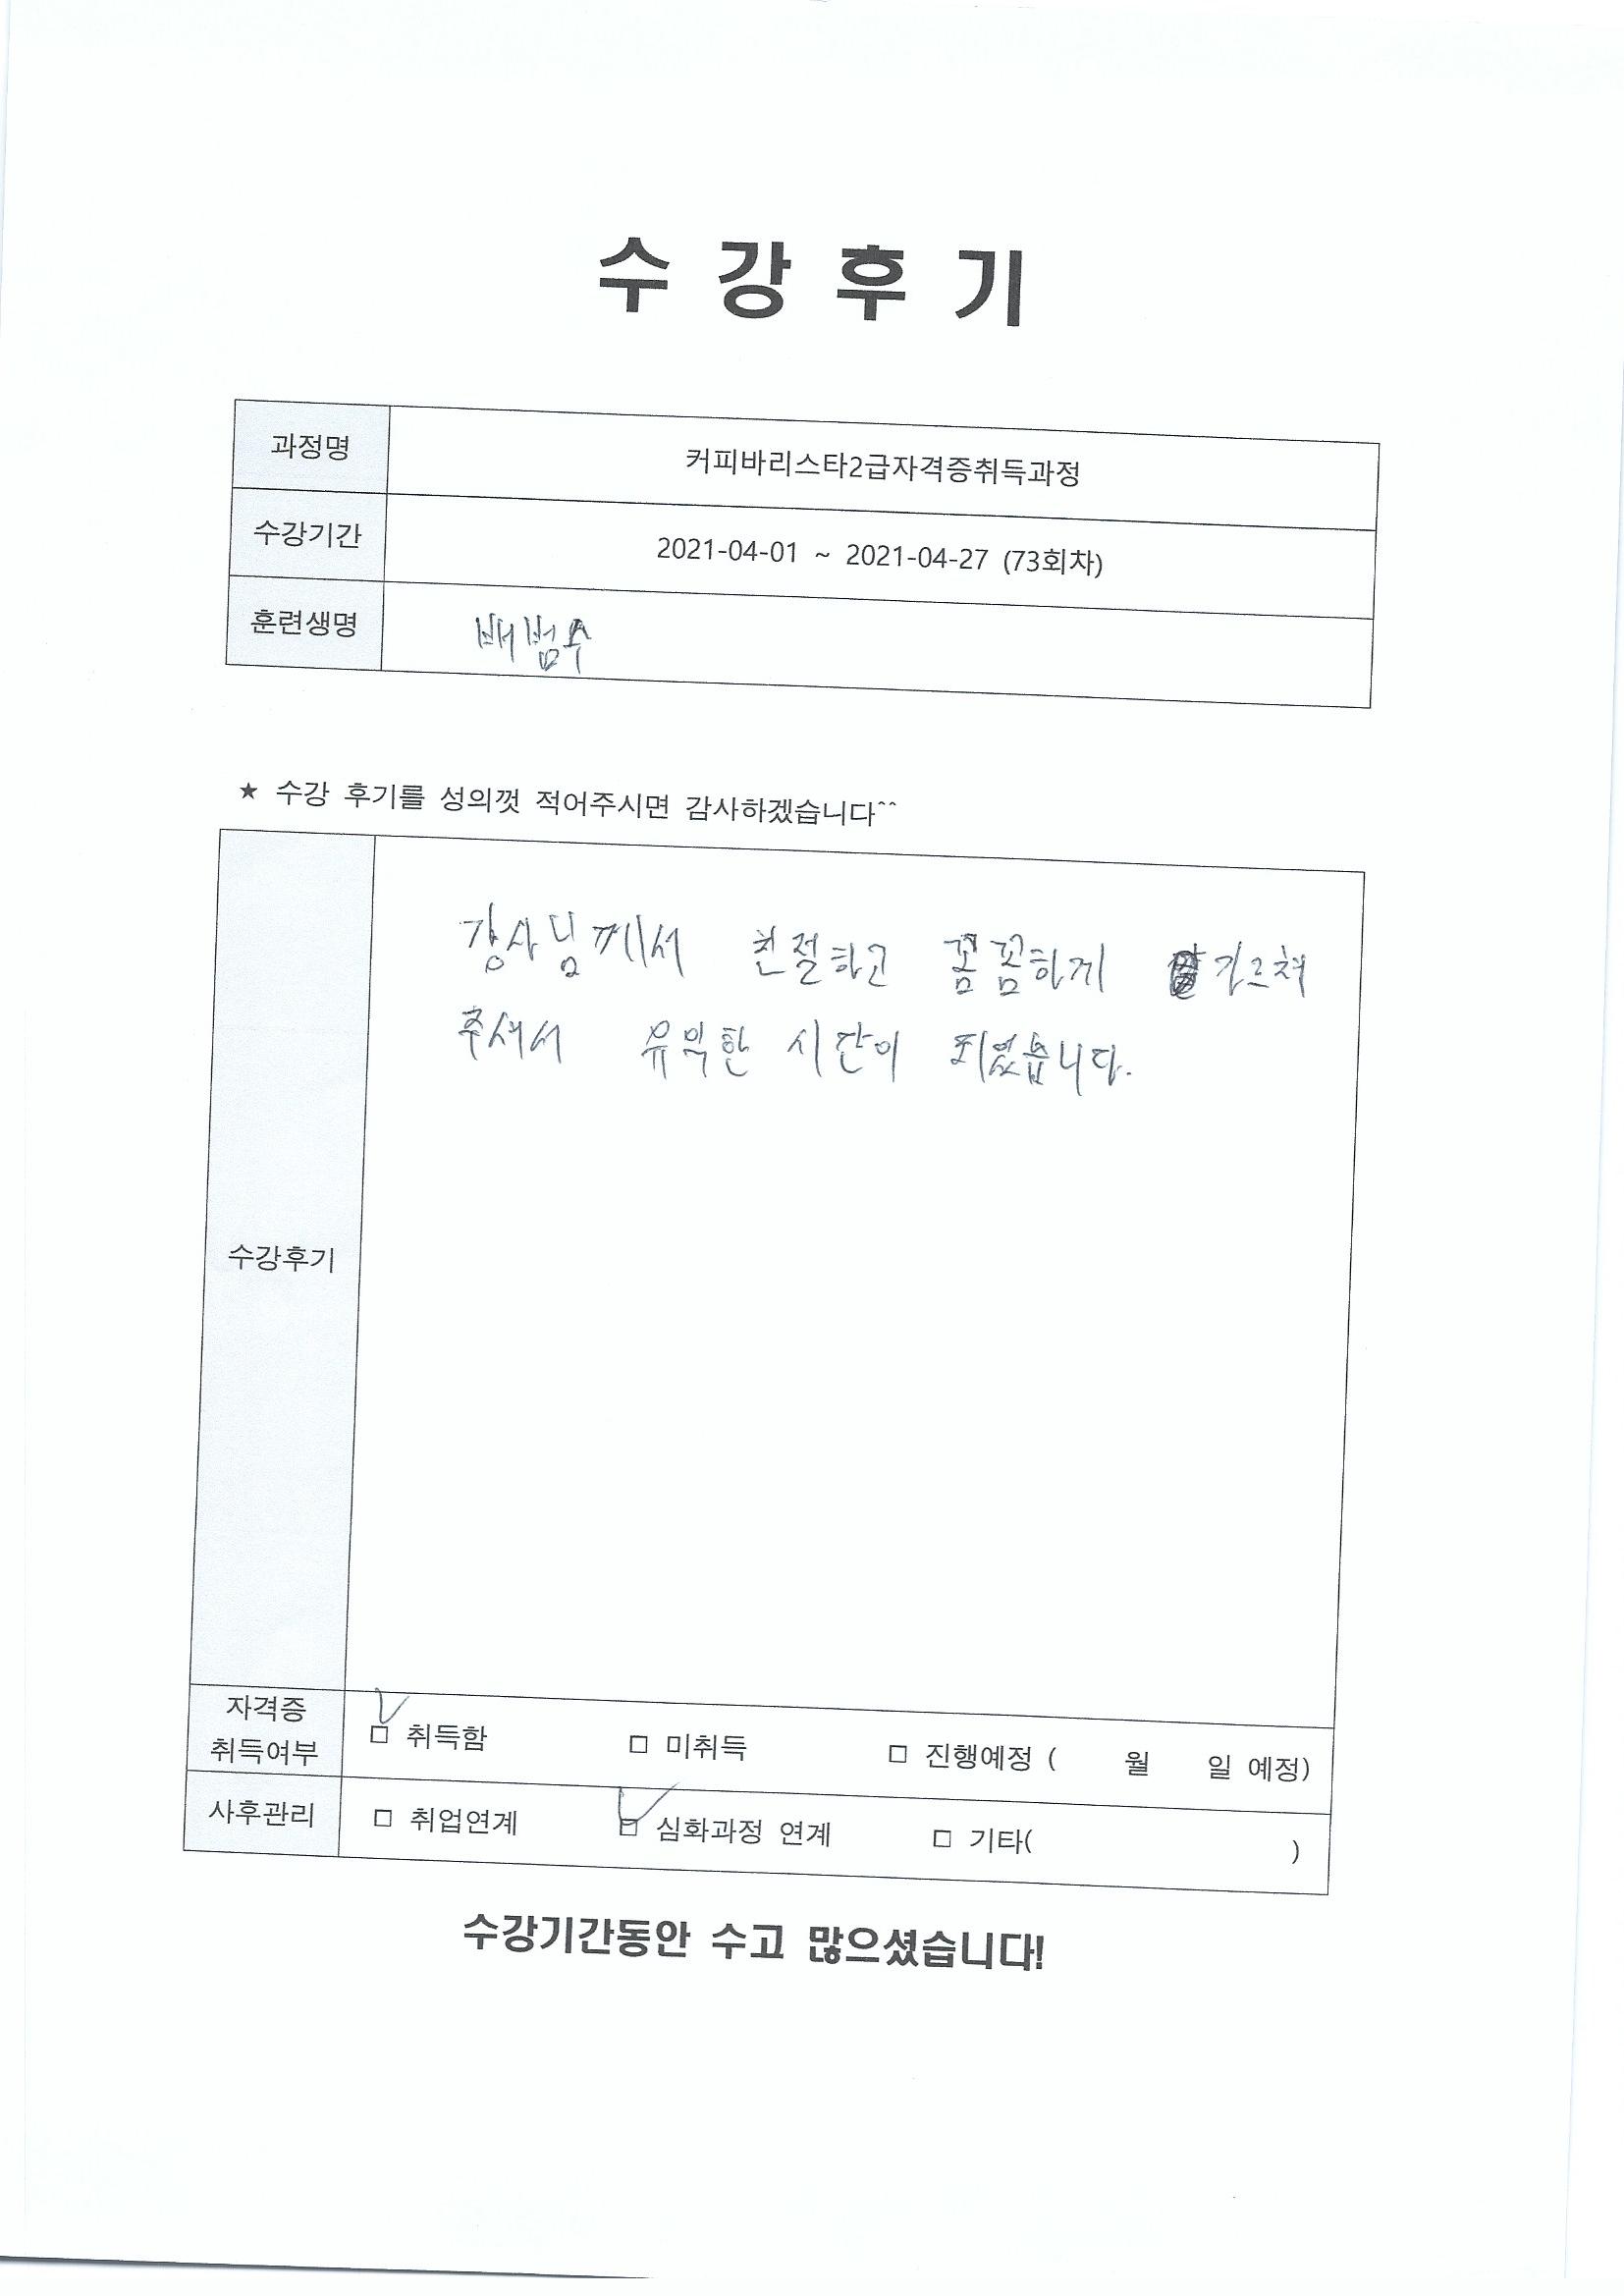 수 강 후 기
과정명 커피바리스타2급자격증취득과정
수강기간 2021-04-01 ~ 2021-04-27 (73회차)
훈련생명 배범수
★ 수강 후기를 성의껏 적어주시면 감사하겠습니다^^
강사님께서 친절하고 꼼꼼하게 가르쳐
주셔서 유익한 시간이 되었습니다.
수강후기
자격증
취득여부 ☑ 취득함 □ 미취득 □ 진행예정 ( 월 일 예정)
사후관리 □ 취업연계 ☑ 심화과정 연계 □ 기타( )
수강기간동안 수고 많으셨습니다!